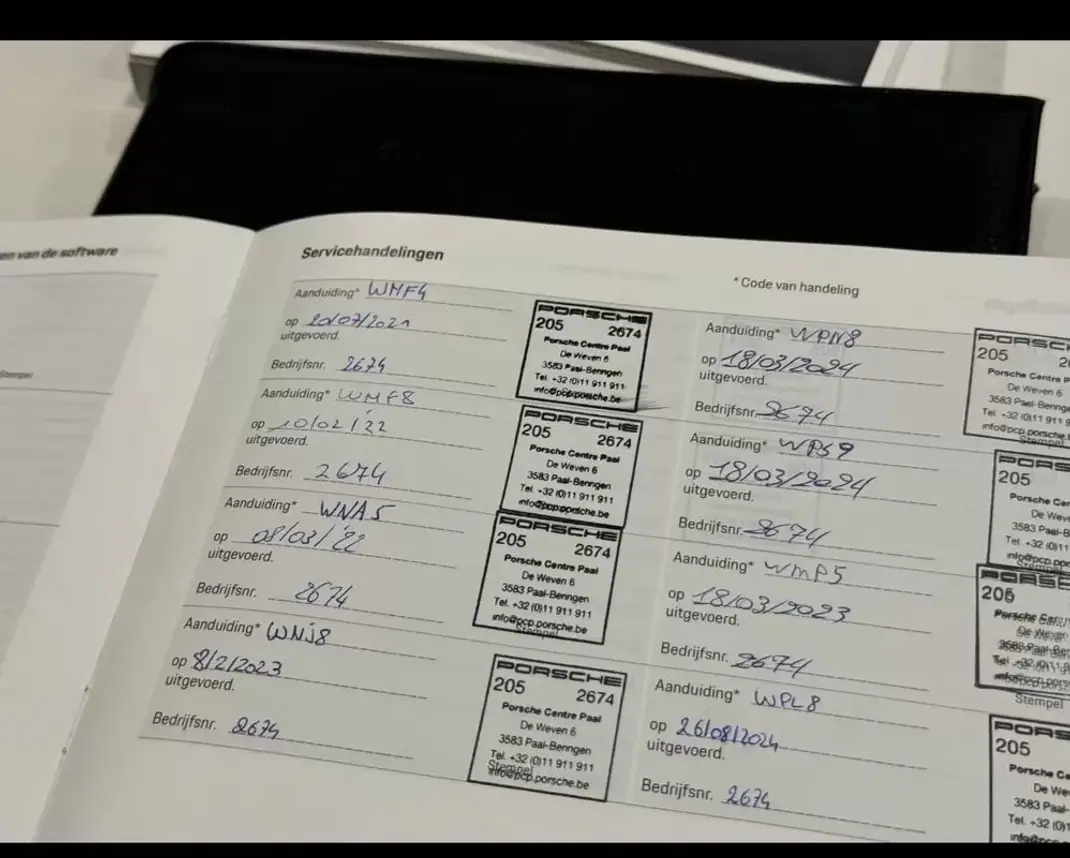 en van de software
Stempel
Servicehandelingen
* Code van handeling
Aanduiding* WMF4
op 20/07/2021
uitgevoerd.
Bedrijfsnr. 2674
PORSCHE
205 2674
Porsche Centre Paal
De Weven 6
3583 Paal-Beringen
Tel. +32 (0)11 911 911
info@pcp.porsche.be
Aanduiding* WMF8
op 10/02/'22
uitgevoerd.
Bedrijfsnr. 2674
PORSCHE
205 2674
Porsche Centre Paal
De Weven 6
3583 Paal-Beringen
Tel. +32 (0)11 911 911
info@pcp.porsche.be
Aanduiding* WNA5
op 08/03/'22
uitgevoerd.
Bedrijfsnr. 2674
PORSCHE
205 2674
Porsche Centre Paal
De Weven 6
3583 Paal-Beringen
Tel. +32 (0)11 911 911
info@pcp.porsche.be
Stempel
Aanduiding* WNJ8
op 8/2/2023
uitgevoerd.
Bedrijfsnr. 2674
PORSCHE
205 2674
Porsche Centre Paal
De Weven 6
3583 Paal-Beringen
Tel. +32 (0)11 911 911
Stempel
info@pcp.porsche.be
Aanduiding* WPN8
op 18/03/2024
uitgevoerd.
Bedrijfsnr. 2674
PORSC
205 2
Porsche Centre P
De Weven 6
3583 Paal-Bering
Tel. +32 (0)11 911 9
info@pcp.porsche
Stempel
Aanduiding* WPS9
op 18/03/2024
uitgevoerd.
Bedrijfsnr. 2674
PORS
205
Porsche Cen
De Weve
3583 Paal-B
Tel. +32 (0)11
info@pcp.por
Stempel
Aanduiding* WMP5
op 18/03/2023
uitgevoerd.
Bedrijfsnr. 2674
PORSC
205
Porsche Cen
De Weven
Stempel
Aanduiding* WPL8
op 26/08/2024
uitgevoerd.
Bedrijfsnr. 2674
PORS
205
Porsche Ce
De We
3583 Paal-
Tel. +32 (0)1
info@pcp.po